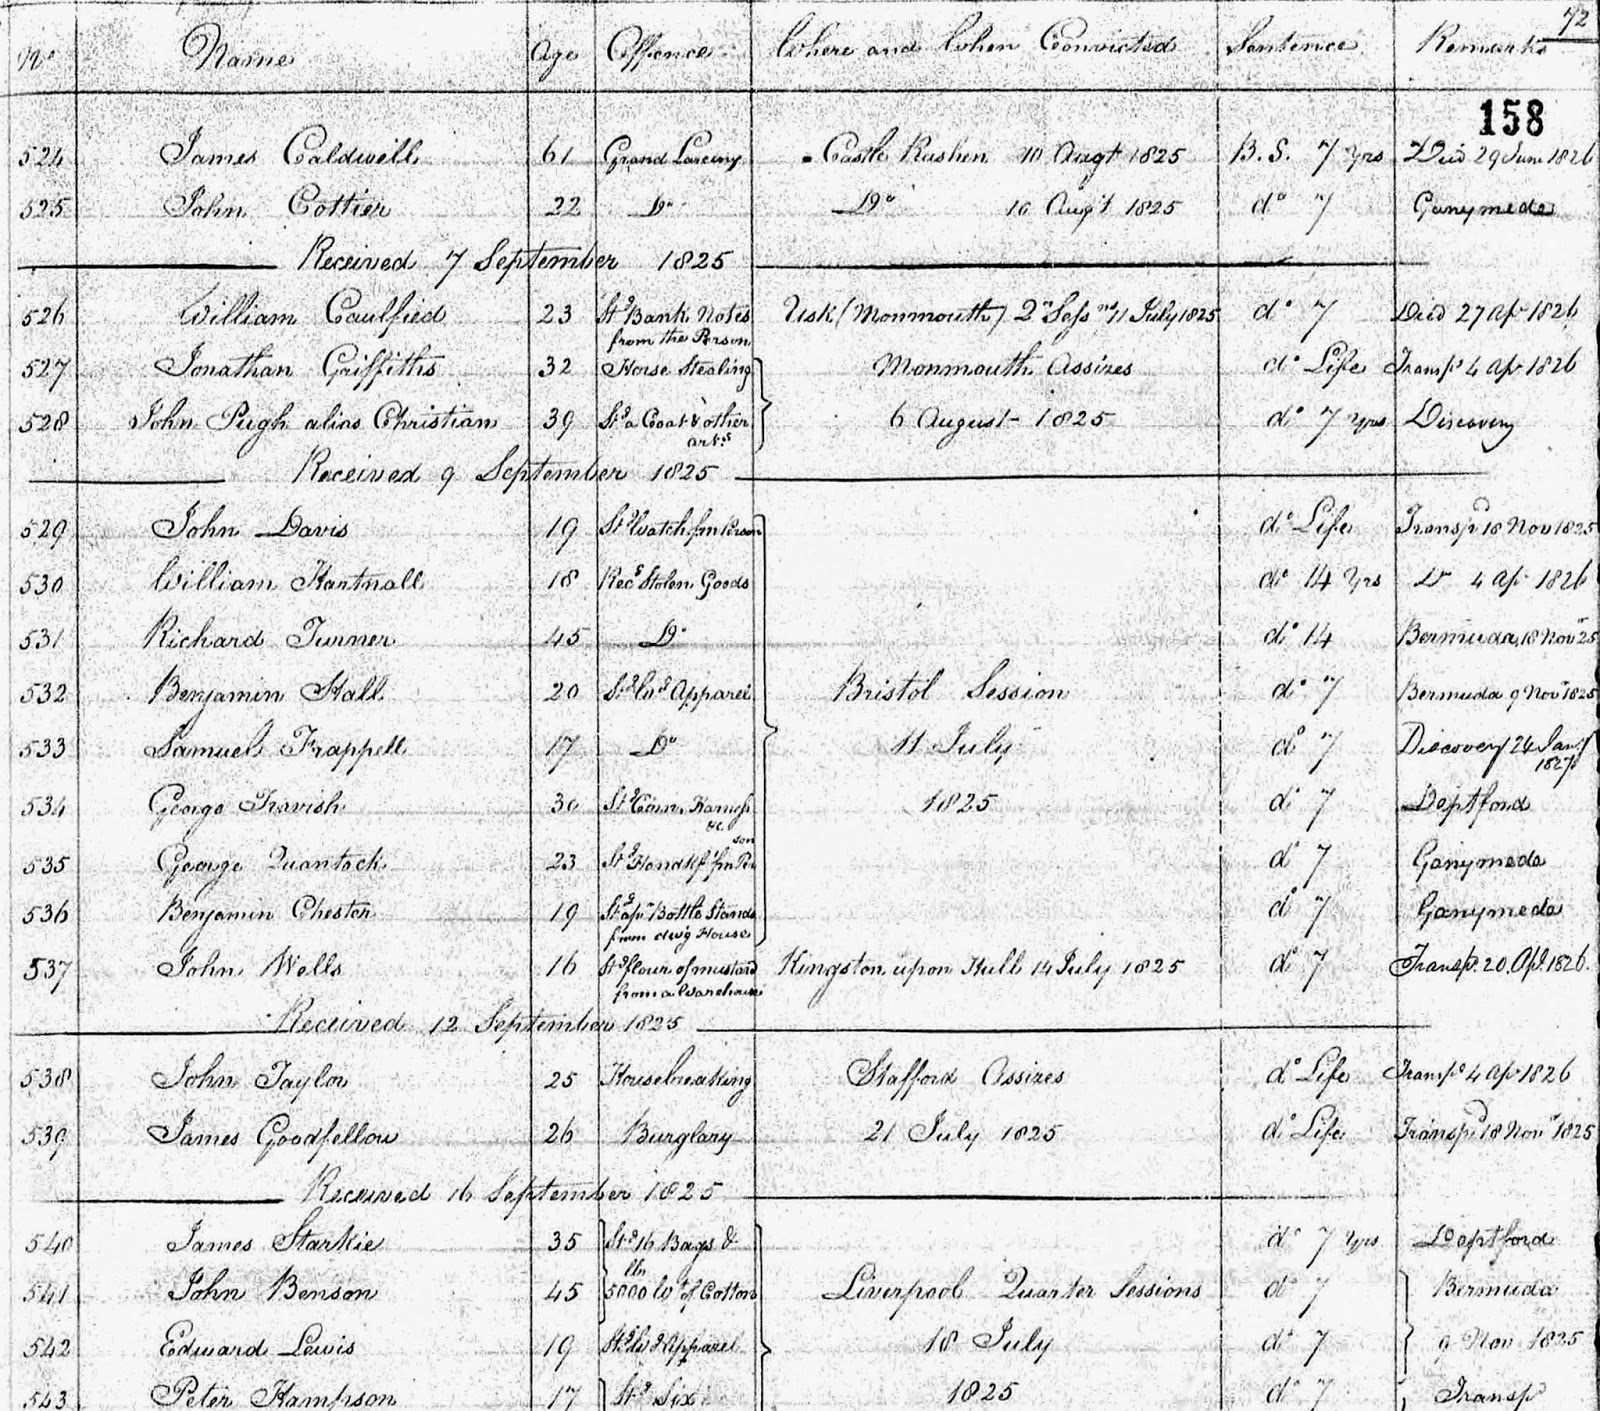 72
No Name Age Offence Where and When Convicted Sentence Remarks
158
524 James Caldwell 61 Grand Larceny Castle Rushen 10 Augt 1825 B. S. 7 yrs Died 29 June 1826
525 John Cottier 22 Do Do 10 Augt 1825 do 7 Ganymede
Received 7 September 1825
526 William Caulfied 23 Std Bank Notes Usk (Monmouth) 2nd Sess 11 July 1825 do 7 Died 27 Ap 1826
from the Person
527 Jonathan Griffiths 32 Horse Stealing Monmouth Assizes do Life Transpd 4 Ap 1826
528 John Pugh alias Christian 39 Std a Coat & other 6 August 1825 do 7 yrs Discovery
arts
Received 9 September 1825
529 John Davis 19 Std Watch fm Person do Life Transpd 18 Nov 1825
530 William Hartnall 18 Recg Stolen Goods do 14 yrs Do 4 Ap 1826
531 Richard Turner 45 Do do 14 Bermuda 18 Novr 25
532 Benjamin Hall 20 Std Wg Apparel Bristol Session do 7 Bermuda 9 Novr 1825
533 Samuel Frappell 17 Do 11 July do 7 Discovery 24 Jany
1827
534 George Travish 30 Std Harness 1825 do 7 Deptford
&c.
son
535 George Quantock 23 Std Handkf fm Per do 7 Ganymede
536 Benjamin Chester 19 Std a pr Bottle Stands do 7 Ganymede
from dwg House
537 John Wells 16 Std flour of mustard Kingston upon Hull 14 July 1825 do 7 Transp. 20. Apl. 1826.
from a Warehouse
Received 12 September 1825
538 John Taylor 25 Housebreaking Stafford Assizes do Life Transpd 4 Ap 1826
539 James Goodfellow 26 Burglary 21 July 1825 do Life Transpd 18 Novr 1825
Received 16 September 1825
540 James Starkie 35 Std 16 Bags & do 7 yrs Deptford
541 John Benson 45 5000 lbs of Cotton Liverpool Quarter Sessions do 7 Bermuda
542 Edward Lewis 19 Std Wg Apparel 18 July do 7 9 Nov 1825
543 Peter Hampson 17 Std Six 1825 do 7 Transp